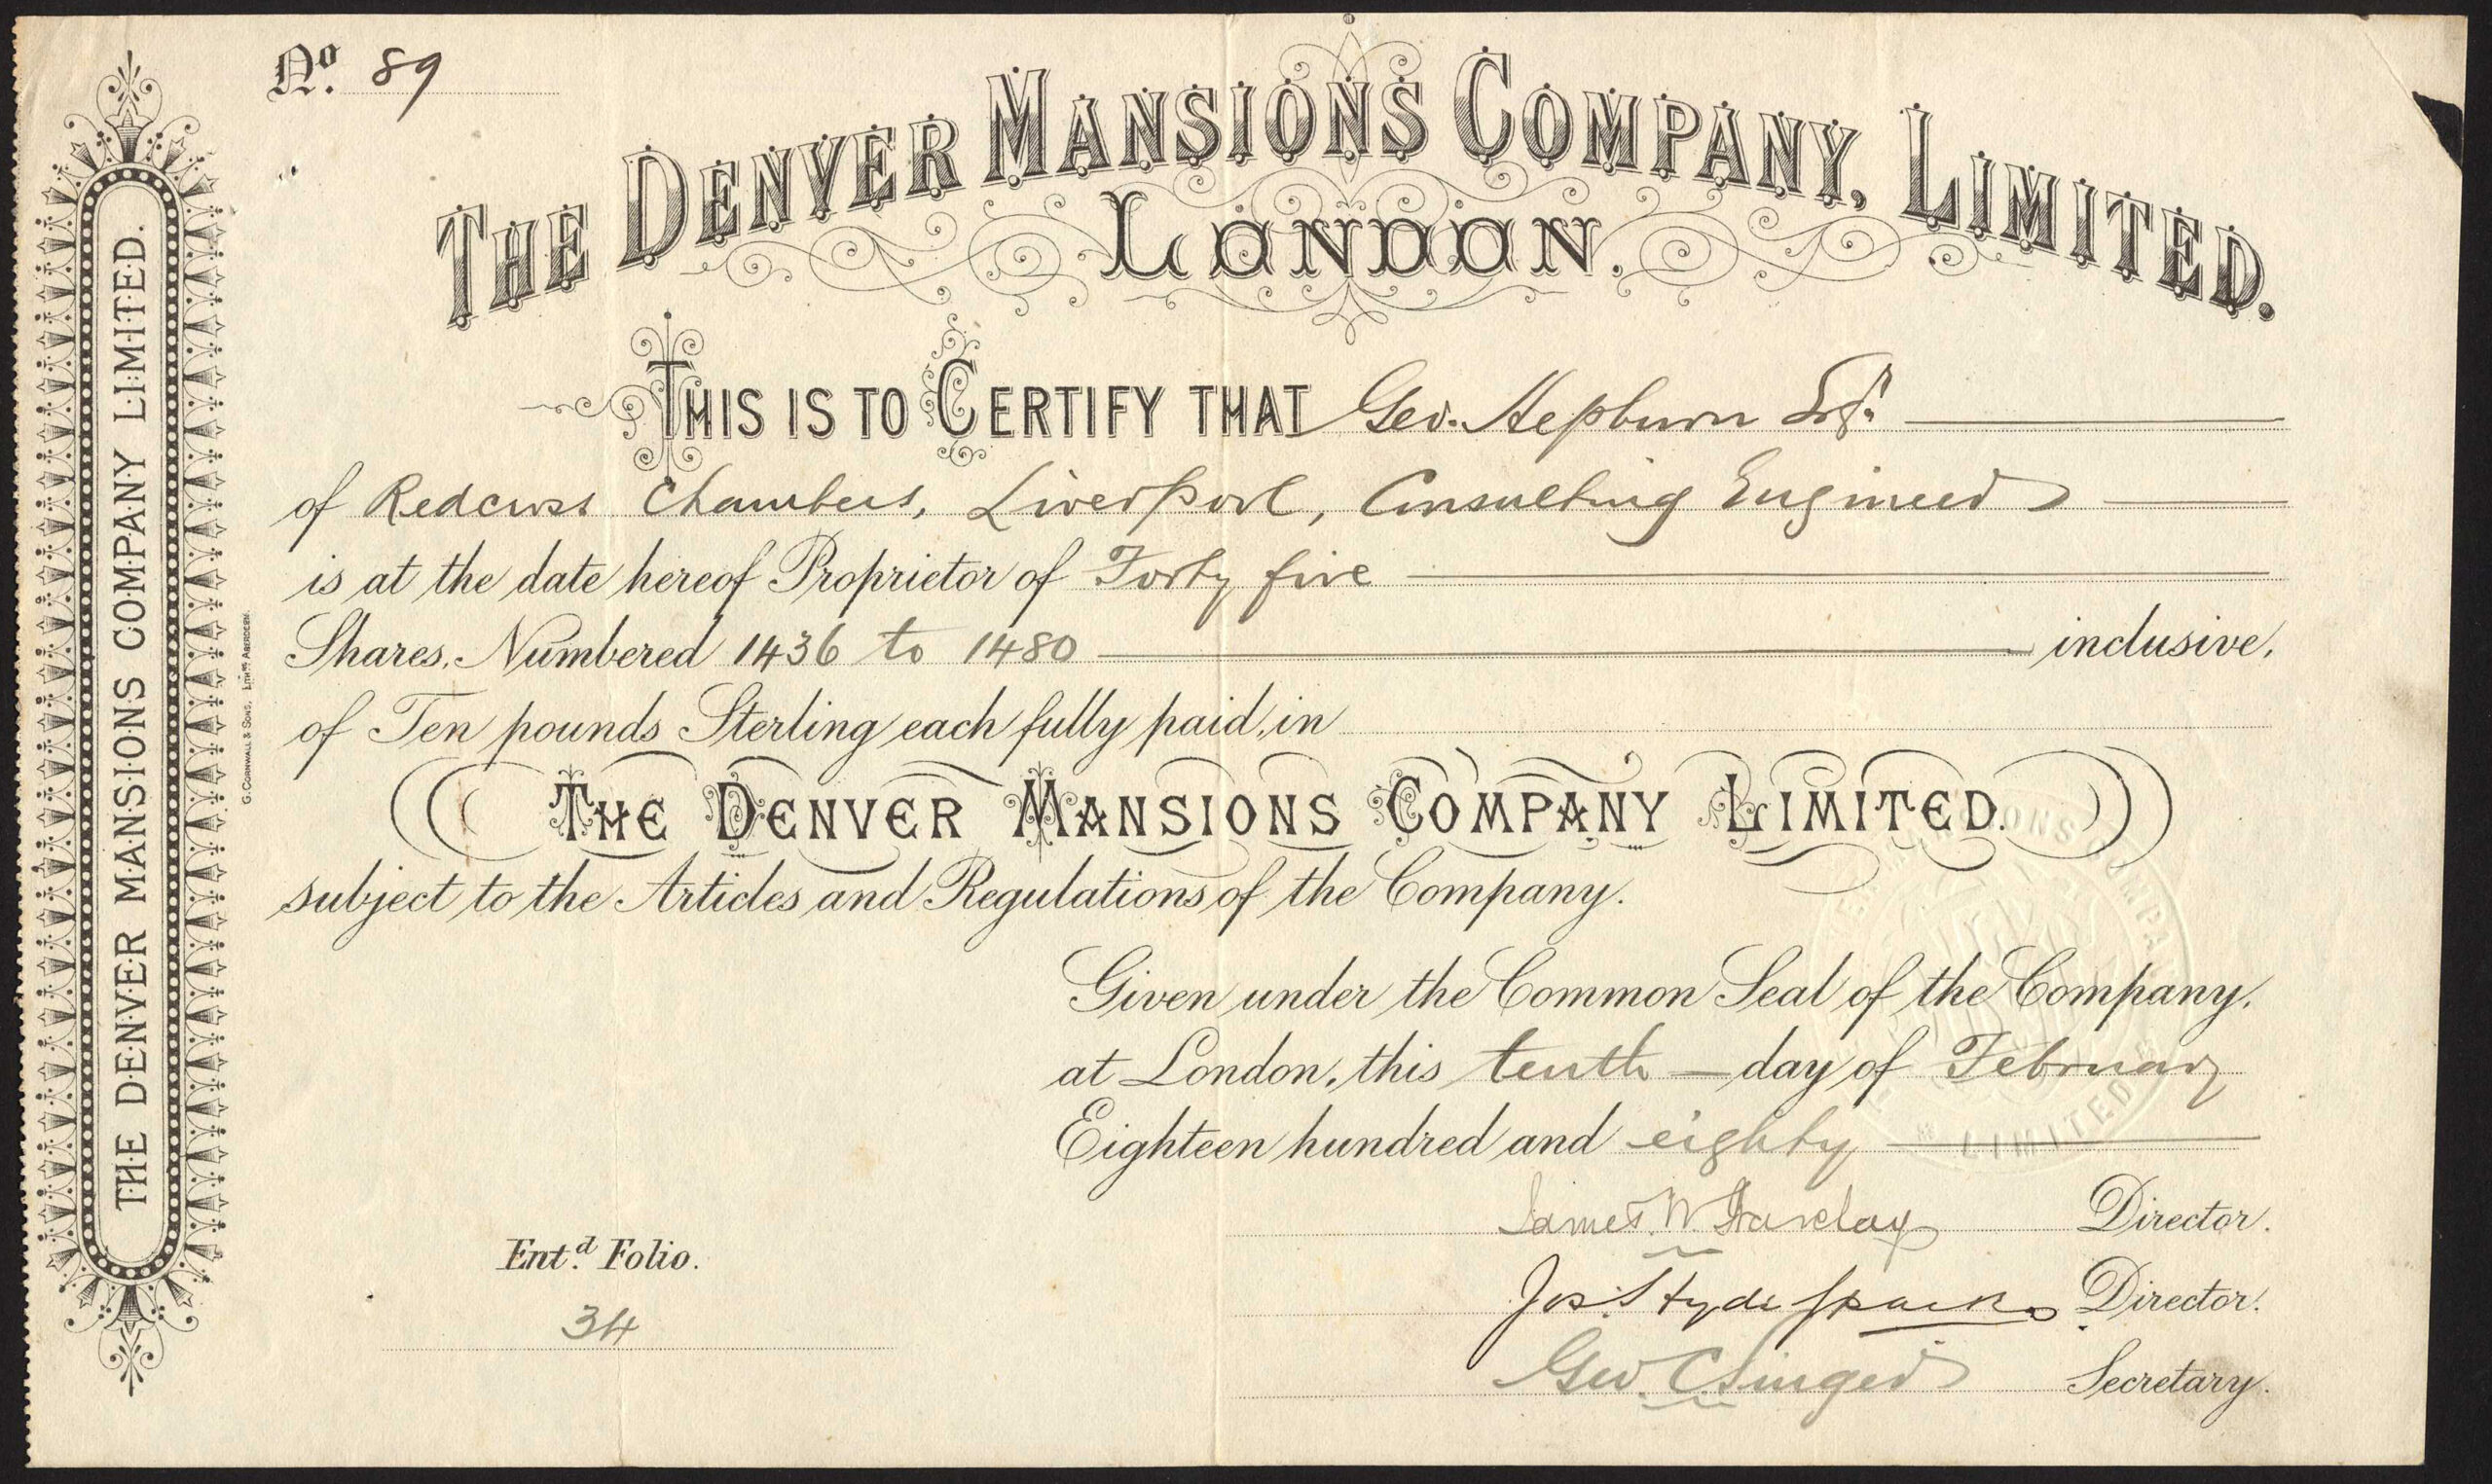 No. 89
THE DENVER MANSIONS COMPANY, LIMITED.
LONDON.
THIS IS TO CERTIFY THAT Geo. Hepburn Esqr.
of Redcross Chambers, Liverpool, Consulting Engineer
is at the date hereof Proprietor of Forty five
Shares, Numbered 1436 to 1480 inclusive,
of Ten pounds Sterling each fully paid, in
THE DENVER MANSIONS COMPANY LIMITED.
subject to the Articles and Regulations of the Company.
Given under the Common Seal of the Company,
at London, this tenth day of February
Eighteen hundred and eighty
James W. Barclay Director.
Jos. Hyde Sparks Director.
Geo. C. Singer Secretary.
Entd. Folio.
34
THE DENVER MANSIONS COMPANY LIMITED.
G. CORNWALL & SONS, LITHRS ABERDEEN.
MANSIONS COMPANY
LIMITED